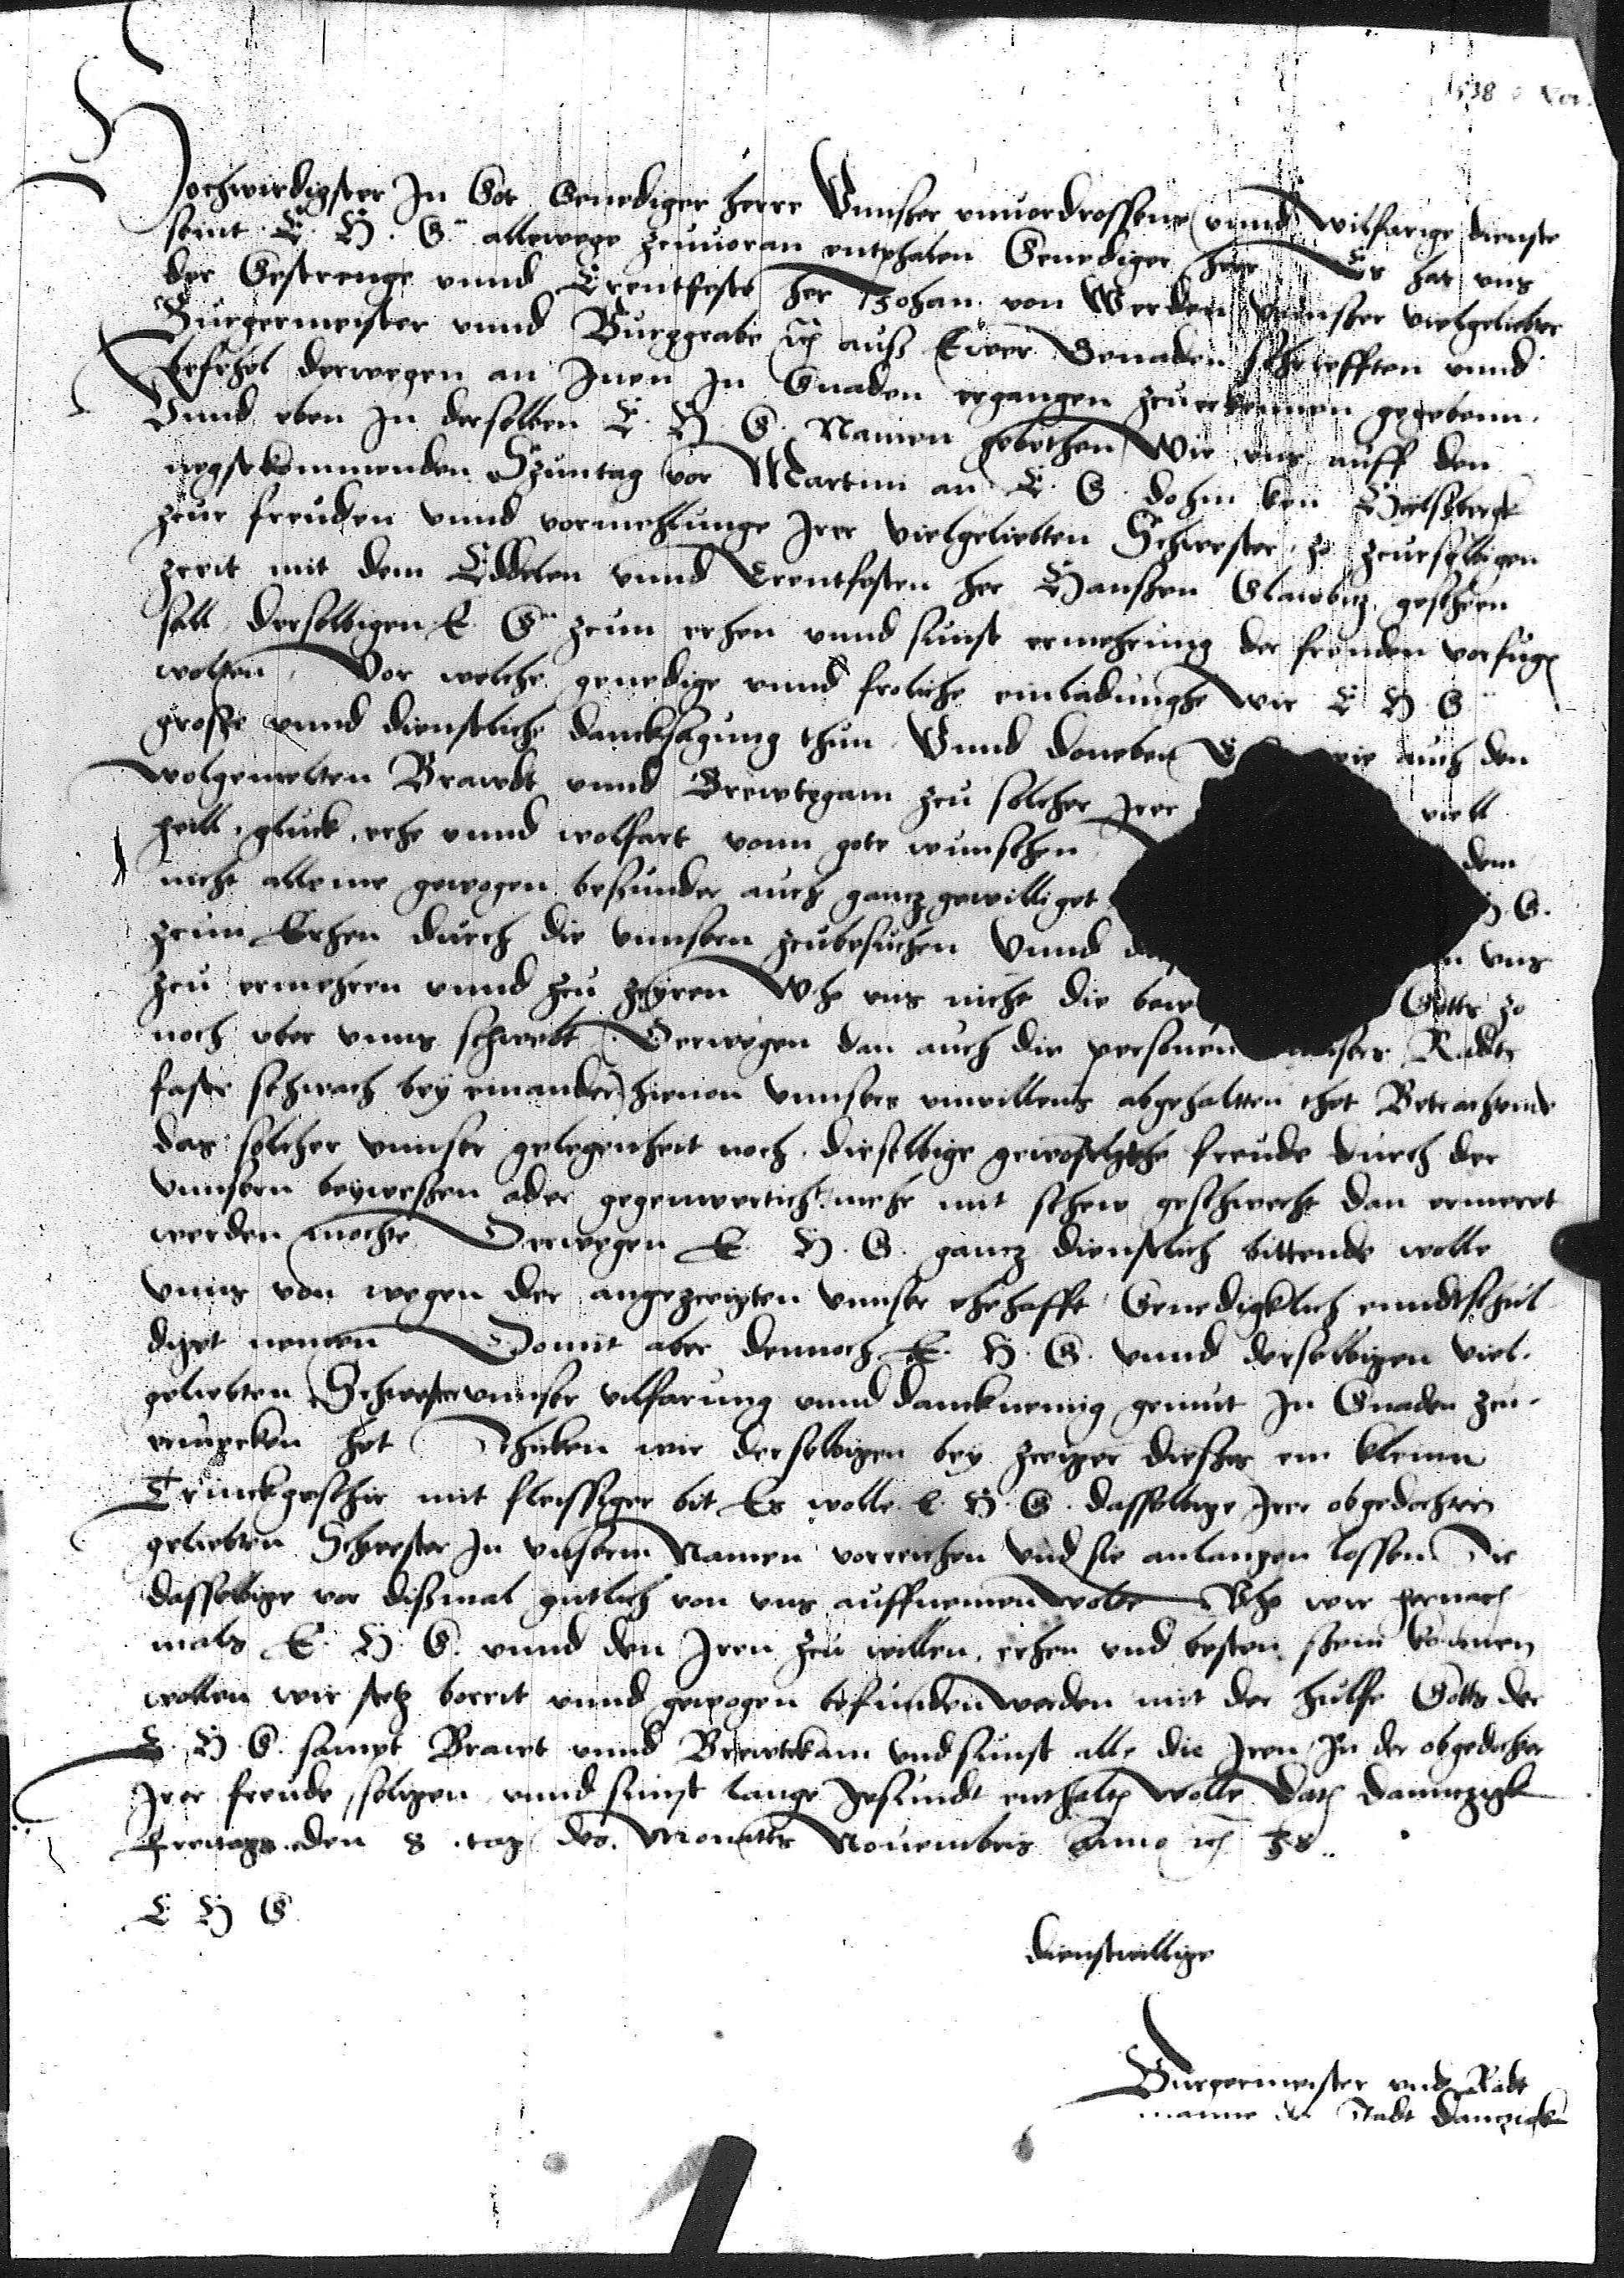 1538 8 Nov.
Hochwirdigster In Got Genediger herre Vnnser vnuordrossene vnnd wilfarige dienste
seint E. H. G. allewege zcuuoran entphalen Genediger herr Es hat vns
der Gestrenge vnnd Erentfeste her Johan von Werden vnnser vielgelieber
Burgermeister vnnd Burggrabe etc auß Ewer Genaden schriefften vnnd
befehel derwegen an Inen In Gnaden ergangen zcuerkennen gegebenn.
Vnnd eben In derselben E. H. G. Namen gebethen Wir vns auff den
negstkommenden Szuntag vor Martini an E. G. hoffin ken Heilszberge
zcur freuden vnnd vormehlunge Irer vielgeliebten Schwester, so zcurselbigen
zceit mit dem Eddelen vnnd Erentfesten her Hanszen Glawbicz geschen
sall derselbigen E. G. zcun erhen vnnd sunst ermehrung der freuden vorfugen
wolten, Vor welche genedige vnnd froliche einladunghe wir E H G
grosze vnnd dienstliche dancksagung thun Vnnd doneben wir auch den
wolgemelten Brawdt vnnd Brewtgam zcu solcher Irer viell
heill, gluck, erhe vnnd wolfart vonn gote wunschen dem
nicht alleine gewogen besunder auch gancz gewilliget H. G.
zcun Erhen durch die vnnsern zcubesuchen Vnnd vns
zcu ermehren vnnd zcu zyren Who vns nicht die Gotts so
noch vber vnns schwebt Derwegen dan auch die personen vnnsers Radts
faste schwach bey einander hirvon vnnsers vnwillens abgehaltten thet Betrachtende
das solcher vnnser gelegenheit noch dieselbige freude durch der
vnnsern beyweszen ader gegenwerticheit mehr mit schew geschwecht dan ermeret
werden mochte Derwegen E. H. G. gancz dienstlich bittende wolle
vnns von wegen der angezceigten vnnser ehehafft Genediglich enndtschul-
diget nemen Domit aber dennoch E. H. G. vnnd derselbigen viel-
geliebten Schwester vnnser wilfarung vnnd dancknemig gemut In Gnaden zcu-
vermercken het Schicken wir derselbigen bey zceiger disszes ein klein
Trinckgeschir mit fleissiger bit Es wolle E. H. G. dasselbige Irer obgedochten
geliebten Schwester In vnserm Namen vorreichen vnd sie anlangen lossen Die
dasselbige vor dißmal gutlich von vns auffnemen wolle Who wir hernach
mals E. H. G. vnnd den Iren zcu willen, erhen vnd besten sein konnen
wollen wir stetz bereit vnnd gewogen befunden werden mit der hulffe Gotts der
E. H. G. sampt Brawt vnnd Brewtekam vnd sunst alle die Iren In der obgedochter
Irer freude seligen vnnd sunst lange gesundt enthalten wolle Dat Danntzigk
Freitags den 8 tag des Monatts Nouembris Anno etc 38
E H G
dienstwillige
Burgermeister vnd Radt
manne der Stadt Danczigk